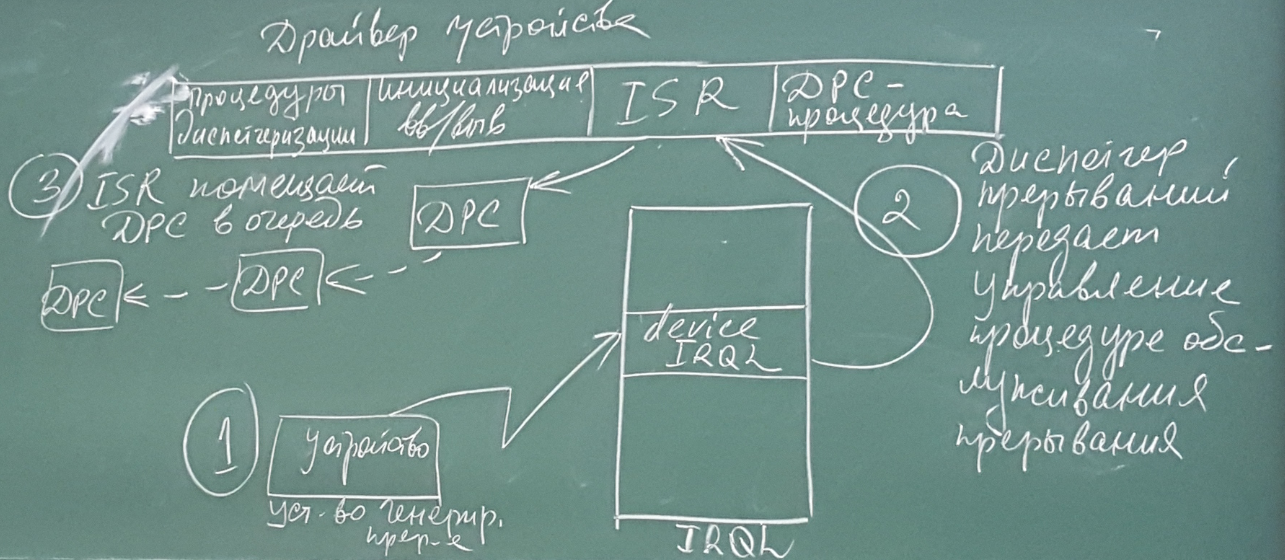 Драйвер устройства
процедуры
диспетчеризации
инициализация
вв/выв
ISR
DPC-
процедура
③ ISR помещает
DPC в очередь
DPC
DPC
DPC
2
Диспетчер
прерываний
передает
управление
процедуре обс-
луживания
прерывания
device
IRQL
1
Устройство
уст-во генерир.
прер-е
IRQL